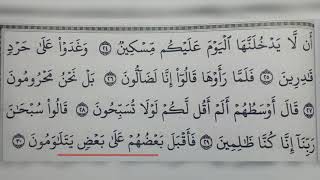 أَن لَّا يَدْخُلَنَّهَا الْيَوْمَ عَلَيْكُم مِّسْكِينٌ ٢٤ وَغَدَوْا عَلَىٰ حَرْدٍ
قَادِرِينَ ٢٥ فَلَمَّا رَأَوْهَا قَالُوا إِنَّا لَضَالُّونَ ٢٦ بَلْ نَحْنُ مَحْرُومُونَ
٢٧ قَالَ أَوْسَطُهُمْ أَلَمْ أَقُل لَّكُمْ لَوْلَا تُسَبِّحُونَ ٢٨ قَالُوا سُبْحَانَ
رَبِّنَا إِنَّا كُنَّا ظَالِمِينَ ٢٩ فَأَقْبَلَ بَعْضُهُمْ عَلَىٰ بَعْضٍ يَتَلَاوَمُونَ ٣٠